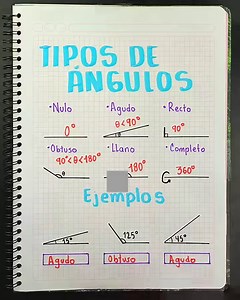 TIPOS DE
ÁNGULOS
•Nulo •Agudo •Recto
0° θ<90° 90°
•Obtuso •Llano •Completo
90°<θ<180° 180° 360°
Ejemplos
125° 45°
Agudo Obtuso Agudo